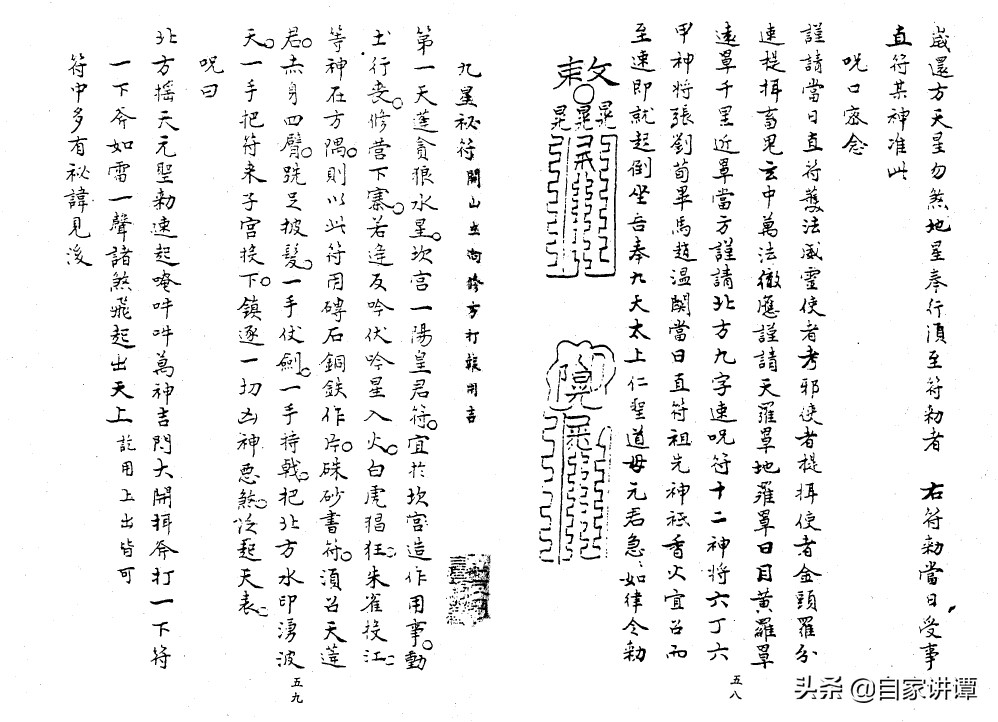 歲還方天星勿煞地星奉行須至符勑者　右符勑當日受事
直符某神准此
呪口密念
謹請當日直符護法威靈使者考邪使者提拜使者金頭羅分
速提拜畜鬼云中萬法徹應謹請天羅罩地羅罩日月黃羅罩
遠罩千里近罩當方謹請北方九字速呪符十二神將六丁六
甲神將張劉荀畢馬趙温関當日直符祖先神祇香火宜召而
至速即就起倒坐吾奉九天太上仁聖道母元君急如律令勑
五八
九星祕符 開山立向修方打報用吉
第一天蓬貪狼水星坎宮一陽皇君符宜於坎宮造作用事動
土行丧修营下寨若逢反吟伏吟星入火白虎猖狂朱雀投江
等神在方隅則以此符用磚石銅鉄作片硃砂書符須召天蓬
君赤身四臂跣足披髮一手仗劍一手持戟把北方水印湧波
天一手把符来子宮挨下鎮逐一切凶神惡煞冷起天表
呪曰
北方摇天元聖勑速起唵吽吽萬神吉門大開拜斧打一下符
一下斧如雷一聲諸煞飛起出天上 訖用上出皆可
符中多有祕諱見後
五九
头条 @自家讲谭